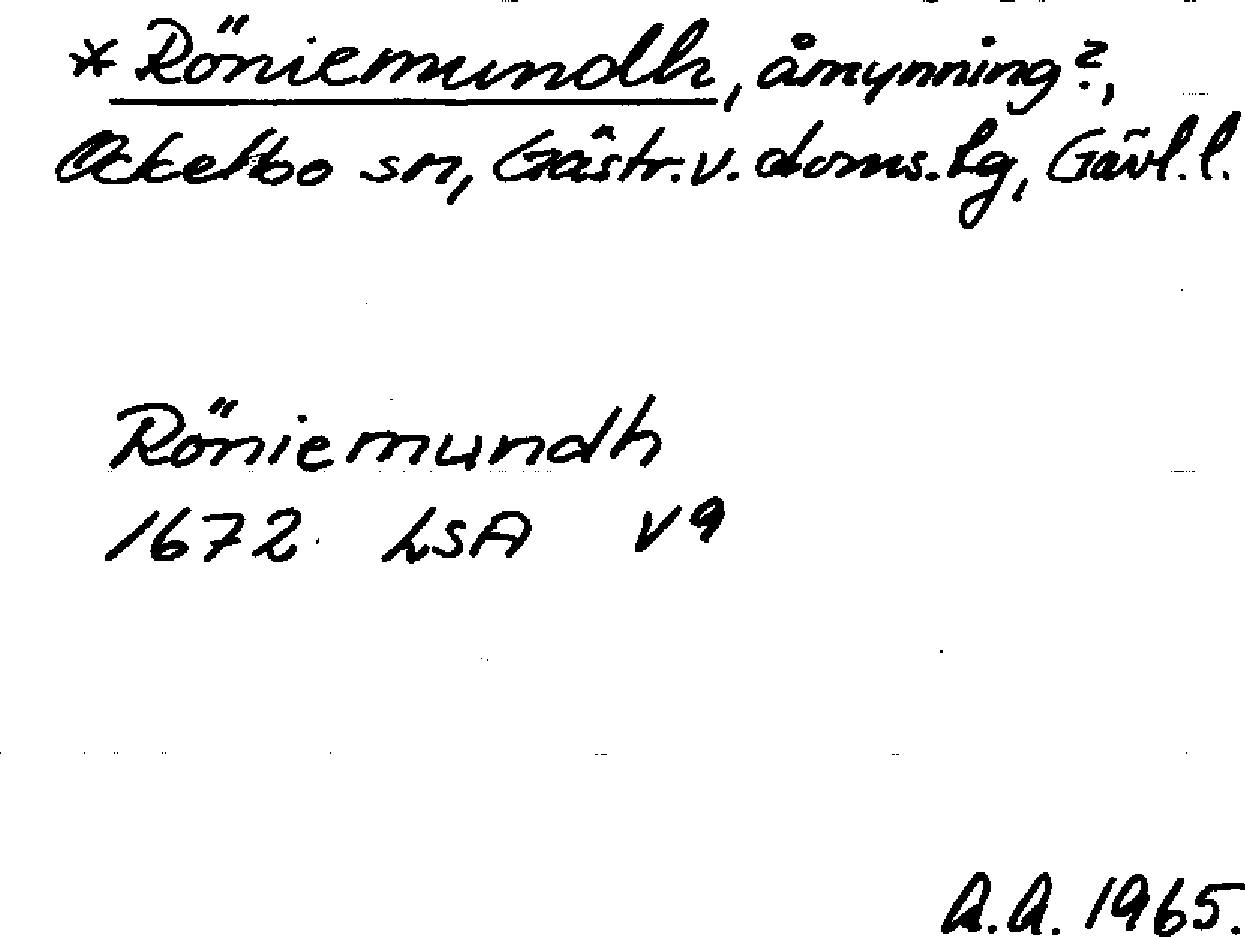 * Röniemundh, åmynning?,
Ockelbo sn, Gästr. v. doms. lg, Gävl. l.
Röniemundh
1672 LSA V9
A.A. 1965.